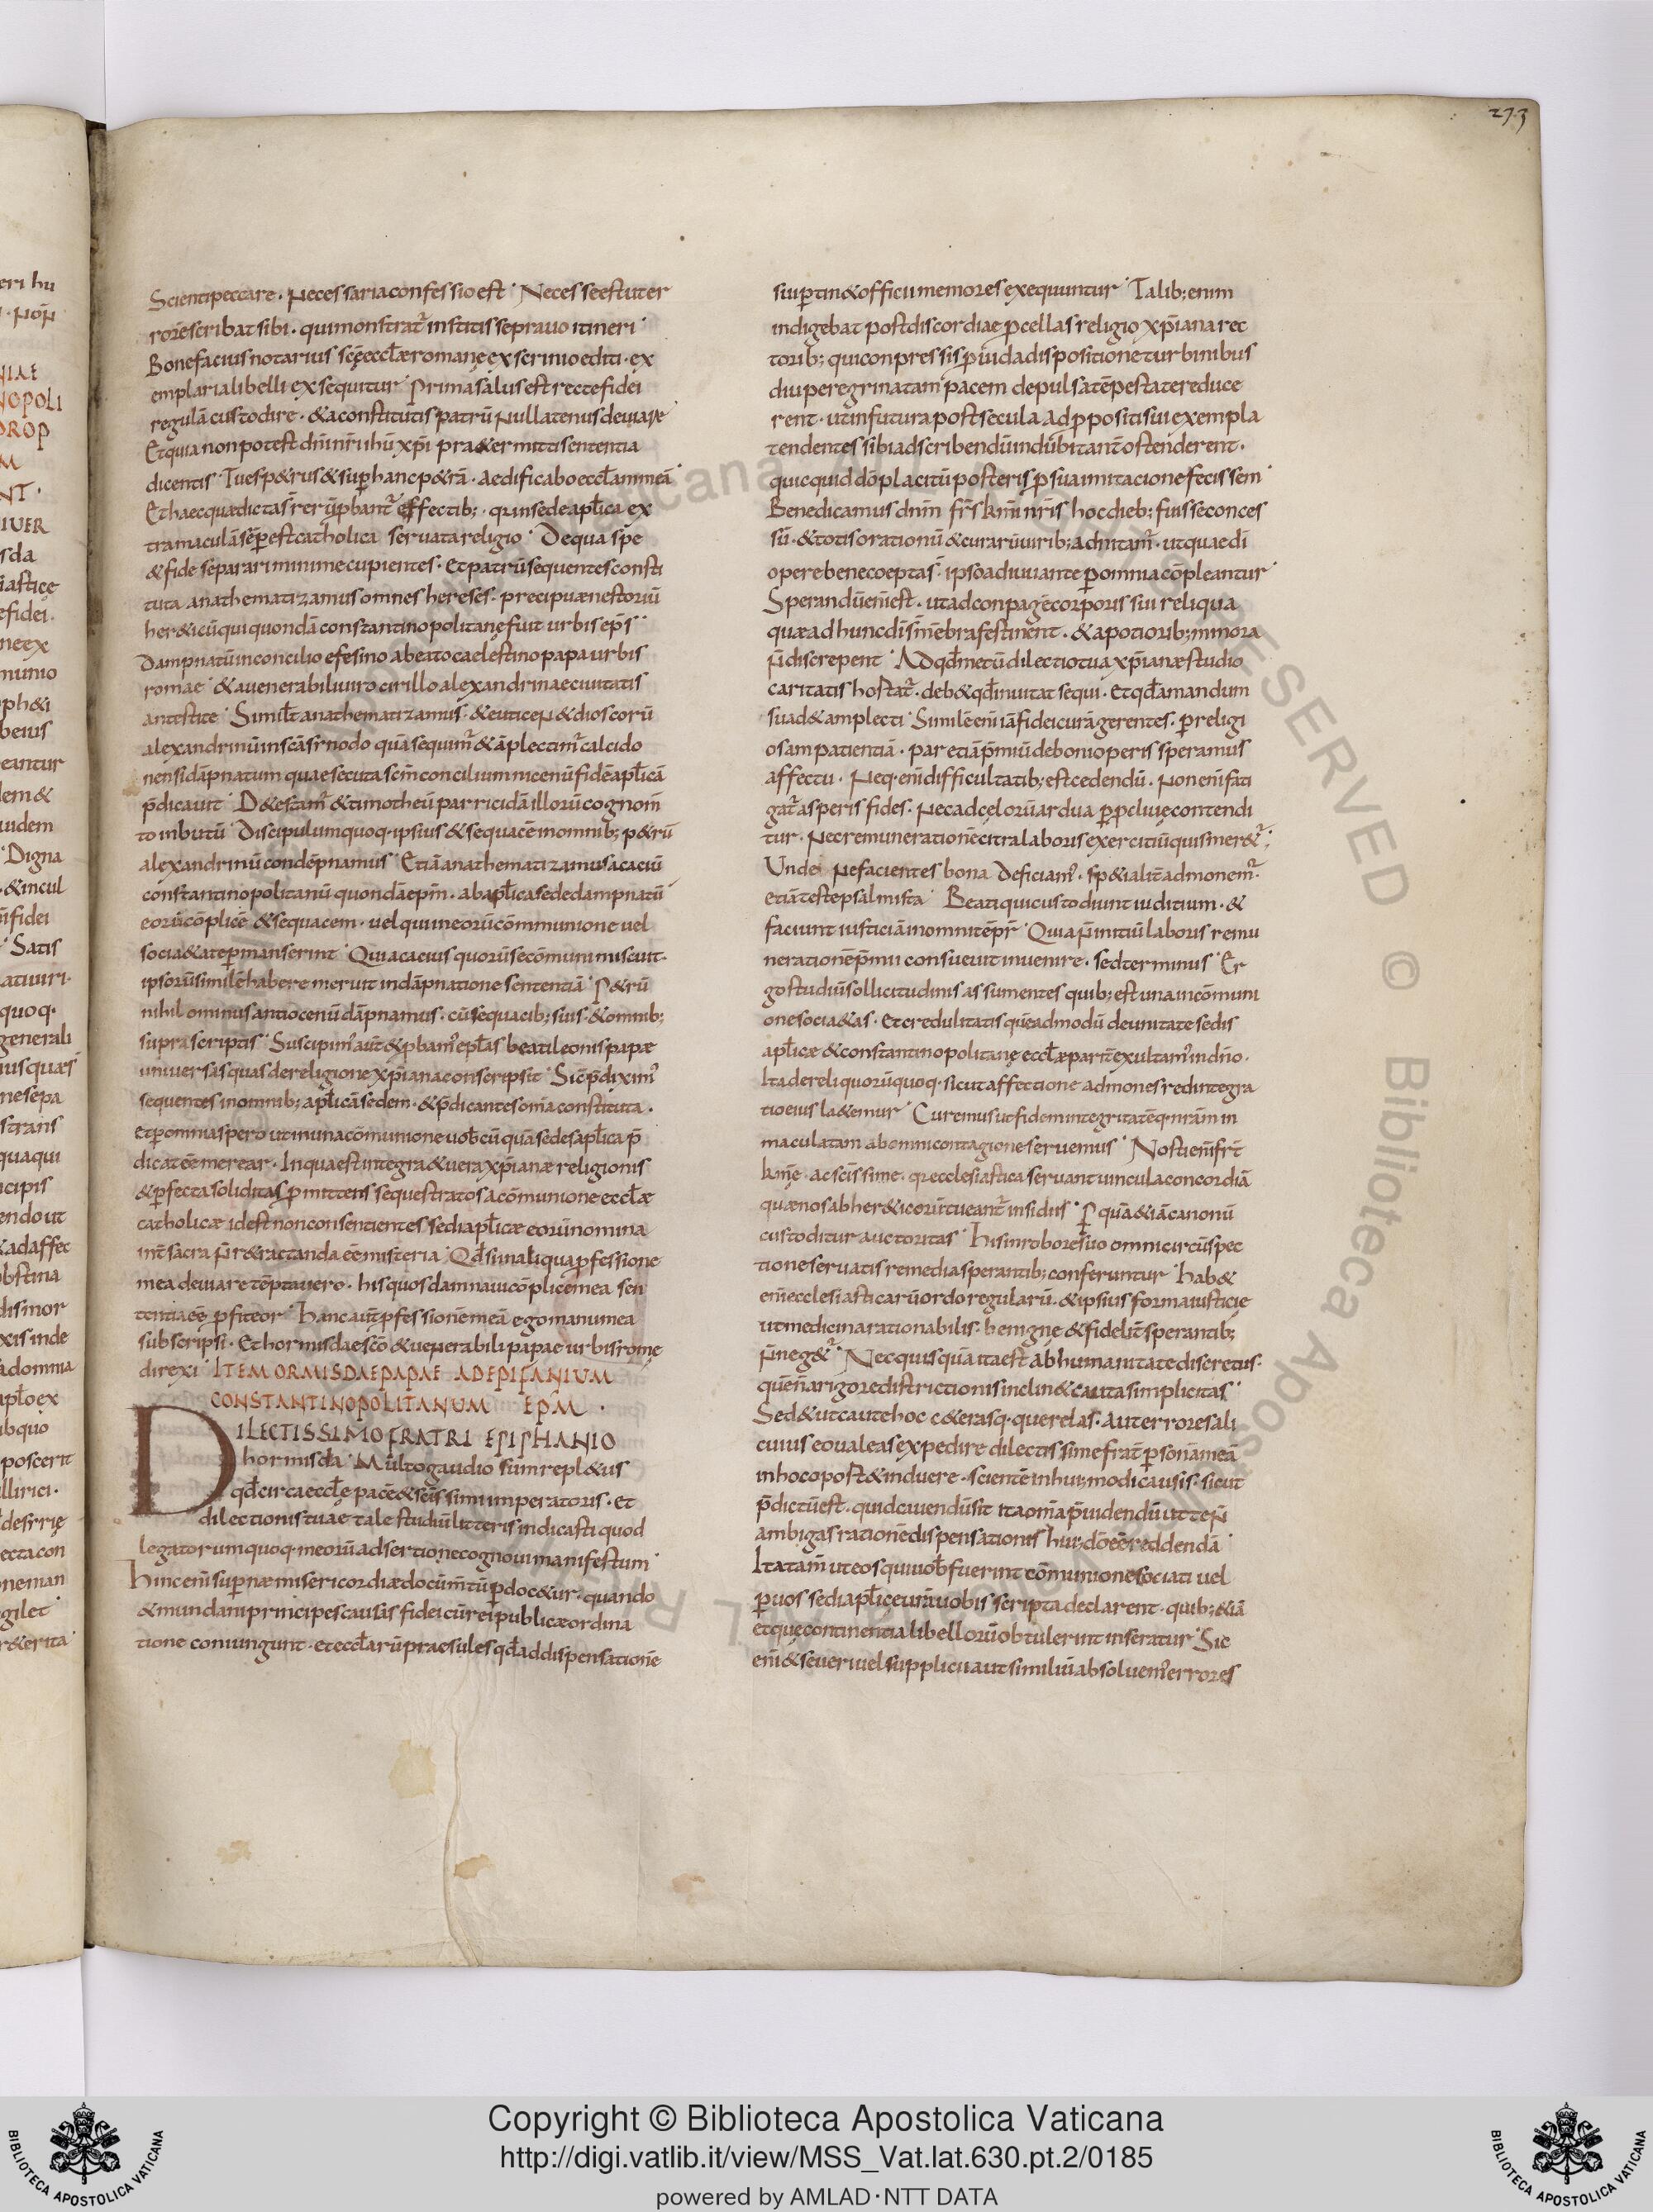 273
Scienti peccare. Necessaria confessio est. Necesse est ut er
rorē scribat sibi. qui monstrat̄ institisse pravo itineri.
Bonefacius notarius scę̄ ecclǣ romanę ex scrinio edidi. ex
emplaria libelli ex sequitur. Prima salus est rectę fidei
regulā custodire. & a constitutis patrū nullatenus deviare.
Et quia non potest dn̄i nr̄i ihū xp̄i præ&ermitti sententia
dicentis. Tu es p&rus & sup̄ hanc p&rā. aedificabo eccl̄am meā.
Et haec quae dicta s̄ rerū p̄bant̄ effectib;. qr in sede apl̄ica ex
tra maculā sēp̄ est catholica servata religio. De qua spe
& fide separari minime cupientes. Et patrū sequentes consti
tuta anathematizamus omnes hereses. precipuæ nestoriū
her&icū qui quondā constantinopolitanę fuit urbis ep̄s.
Dampnatū in concilio efesino a beato caelestino papa urbis
romae. & a venerabili viro cirillo alexandrinae civitatis
antestite. Similit̄ anathematizamus. & euticen & dioscorū
alexandrinū in scā synodo quā sequim̄ & āplectim̄ calcido
nensi dāpnatum quae secuta scm̄ concilium nicenū fidē apl̄icā
p̄dicavit. D&estam̄ & timotheū parricidā illorū cognom̄
to inbutū. Discipulum quoq. ipsius & sequacē in omnib; p&rū
alexandrinū condēpnamus. Etiā anathematizamus acaciū
constantinopolitanū quondā epm̄. ab apl̄ica sede dampnatū
eorū cōplicē & sequacem. vel qui in eorū cōmmunione vel
socia&ate p̄manserint. Quia cacius quorū se cōmuni miscuit.
ipsorū similē habere meruit in dāpnatione sententiā. P&rū
nihil ominus antiocenū dāpnamus. cū sequacib; suis. & omnib;
supra scriptis. Suscipim' aut̄ & p̄bam' epl̄as beati leonis papæ
universas quas de religione xp̄iana conscripsit. Sic p̄diximˀ
sequentes in omnib; apl̄icā sedem. & p̄dicantes om̄ia constituta.
et p̄ omnia spero ut in una cōmunione vob̄ cū quā sedes apl̄ica p̄
dicat eē merear. In qua est integra & vera xp̄ianæ religionis
& p̄fecta soliditas p̄mittens sequestratos a cōmunione eccl̄æ
catholicæ id est non consentientes sedi apl̄icæ eorū nomina
int̄ sacra n̄ r&ractanda eē misteria. Qd̄ si in aliqua p̄fessione
mea deviare tēptavero. his quos damnavi cōplicē mea sen
tentia eē p̄fiteor. Hanc aut̄ p̄fessionē meā ego manu mea
subscripsi. Et hormisdae scō & venerabili papae urbis romę
direxi. ITEM ORMISDAE PAPAE AD EPIFANIUM
CONSTANTINOPOLITANUM EPM̄.
DILECTISSIMO FRATRI EPIPHANIO
hormisda. Multo gaudio sum repl&us
qd̄ circa eccl̄ę pacē & scīssimi imperatoris. et
dilectionis tuae tale studiū litteris indicasti quod
legatorum quoq. meorū adsertione cognovi manifestum.
Hinc enī sup̄næ misericordiæ documt̄ū p̄doc&ur. quando
& mundani principes causis fidei cū rei publicæ ordina
tione coniungunt. et eccl̄arū praesules qd̄ ad dispensationē
sui p̄tin& officii memores exequuntur. Talib; enim
indigebat post discordiae p̄cellas religio xp̄iana rec
torib; qui conpressis p̄vida dispositione turbinibus
diu peregrinatam pacem depulsa tēpestate reduce
rent. ut in futura post secula ad p̄positi sui exempla
tendentes sibi adscribendū indūbitant̄ ostenderent.
quicquid dō placitū posteris p̄ sua imitacione fecissent.
Benedicamus dn̄m fr̄s km̄i nr̄is hoc dieb; fuisse conces
sū. & totis orationū & curarū virib; adnitam̄. ut quae dī
opere bene coeptas. ipso adiuvante p̄ omnia cōpleantur.
Sperandū enī est. ut ad conpagē corporis sui reliqua
quæ ad hunc dis m̄ēbra festinent. & a potiorib; minora
n̄ discrepent. Ad qd̄ me tū dilectio tua xp̄ianæ studio
caritatis hostat̄. deb& qd̄ invitat sequi. Et qd̄ amandum
suad& amplecti. Similē enī iā fidei curā gerentes. p̄ religi
osam patientiā. par etiā p̄miū de boni operis speramus
affectu. Neq. enī difficultatib; est cedendū. Non enī fati
gat̄ asperis fides. Nec ad cęlorū ardua p̄ p̄clivię contendi
tur. Nec remunerationē citra laboris exercitiū quis mer&̄;
Unde ne facientes bona deficiam'. sp&ialit̄ admonem̄.
etiā teste psalmista. Beati qui custodiunt iuditium. &
faciunt iusticiā in omni tēpr̄. Quia n̄ initiū laboris remu
nerationē p̄mii consuevit invenire. sed terminus. Er
go studiū sollicitudinis assumentes quib; est una in cōmuni
one socia&as. Et credulitatis quēadmodū de unitate sedis
apl̄icæ & constantinopolitanę eccl̄æ parit̄ exultam' in dn̄o.
Ita de reliquorū quoq. sicut affectione admones redintegra
tio eius la&emur. Curemus ut fidem integritatēq. nr̄am in
maculatam ab omni contagione servemus. Nosti enī fr̄t
km̄ę. ac scīssime. qr ecclesiastica servant vincula concordiā
quæ nos ab her&icorū tueant̄ insidiis. P̄ quā & iā canonū
custoditur auctoritas. His in robore suo omni circūspec
tione servatis remedia sperantib; conferuntur. Hab&
enī ecclesiasticarū ordo regularū. & ipsius forma iusticię
ut medicina rationabilis. benigne & fidelit̄ sperantib;
n̄ neg&̄. Nec quisquā ita est ab humanitate discretus.
quē n̄ a rigore districtionis inclin& cauta simplicitas.
Sed & ut caute hoc c&erasq. querelas. aut errores ali
cuius eo valeas expedire dilectissime frat̄ p̄sonā meā
in hoc oport& induere. sciente in hui;modi causis. sicut
p̄dictū est. quid cavendū sit ita om̄ia p̄videndū ut te n̄
ambigas rationē dispensationis hui; dō eē reddendā.
Ita tam̄ ut eos qui vob̄ fuerint cōmunione sociati vel
p̄ vos sedi apl̄icę vrā vobis scripta declarent. quib; & iā
et quę continentia libellorū obtulerint inseratur. Sic
enī & severi vel supplicii aut similiū absolvem' errores
Copyright © Biblioteca Apostolica Vaticana
http://digi.vatlib.it/view/MSS_Vat.lat.630.pt.2/0185
powered by AMLAD·NTT DATA
BIBLIOTECA APOSTOLICA VATICANA
BIBLIOTECA APOSTOLICA VATICANA